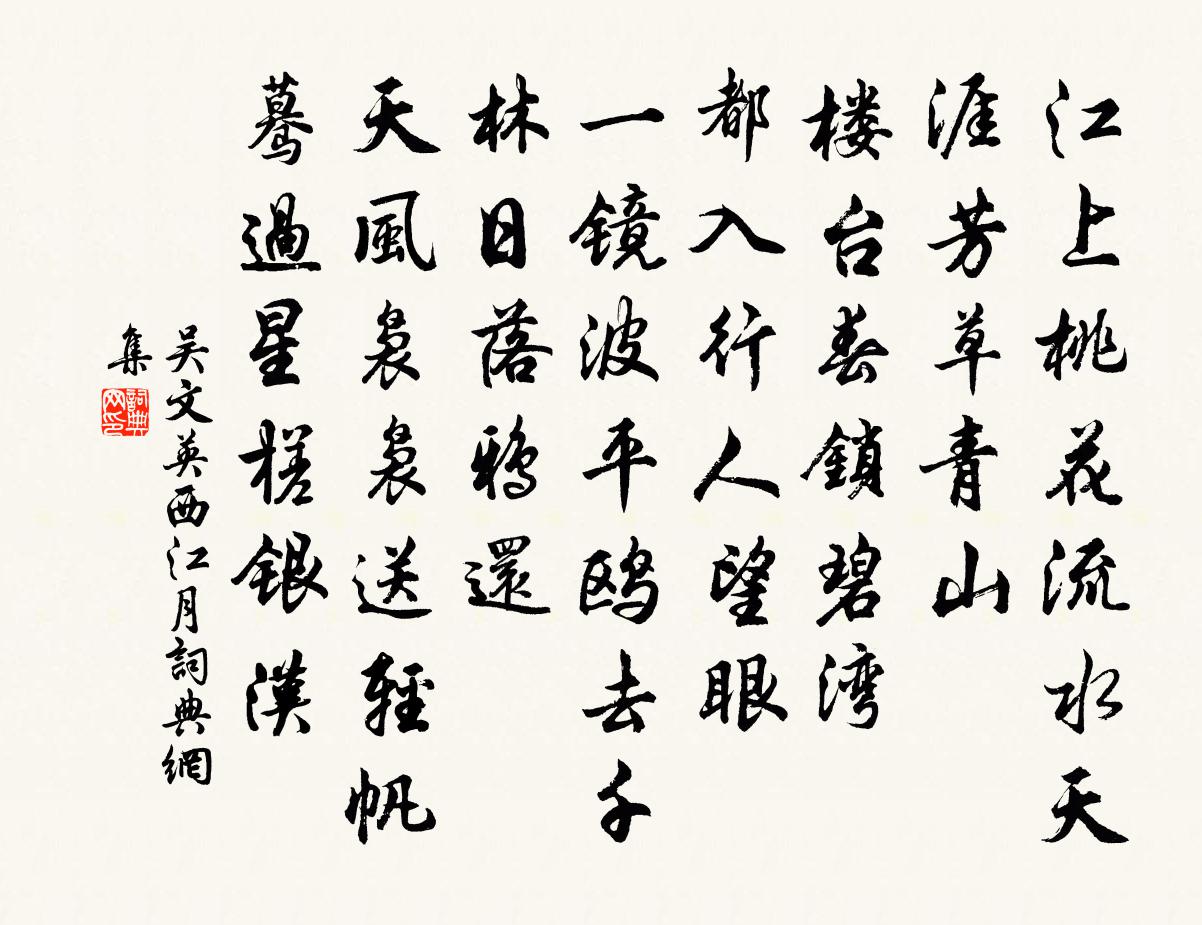 江上桃花流水天
涯芳草青山
楼台春鎖碧湾
都入行人望眼
一镜波平鸥去千
林日落鴉還
天風袅袅送輕帆
蓦過星槎銀漢
吴文英西江月詞典網
集
詞典网印